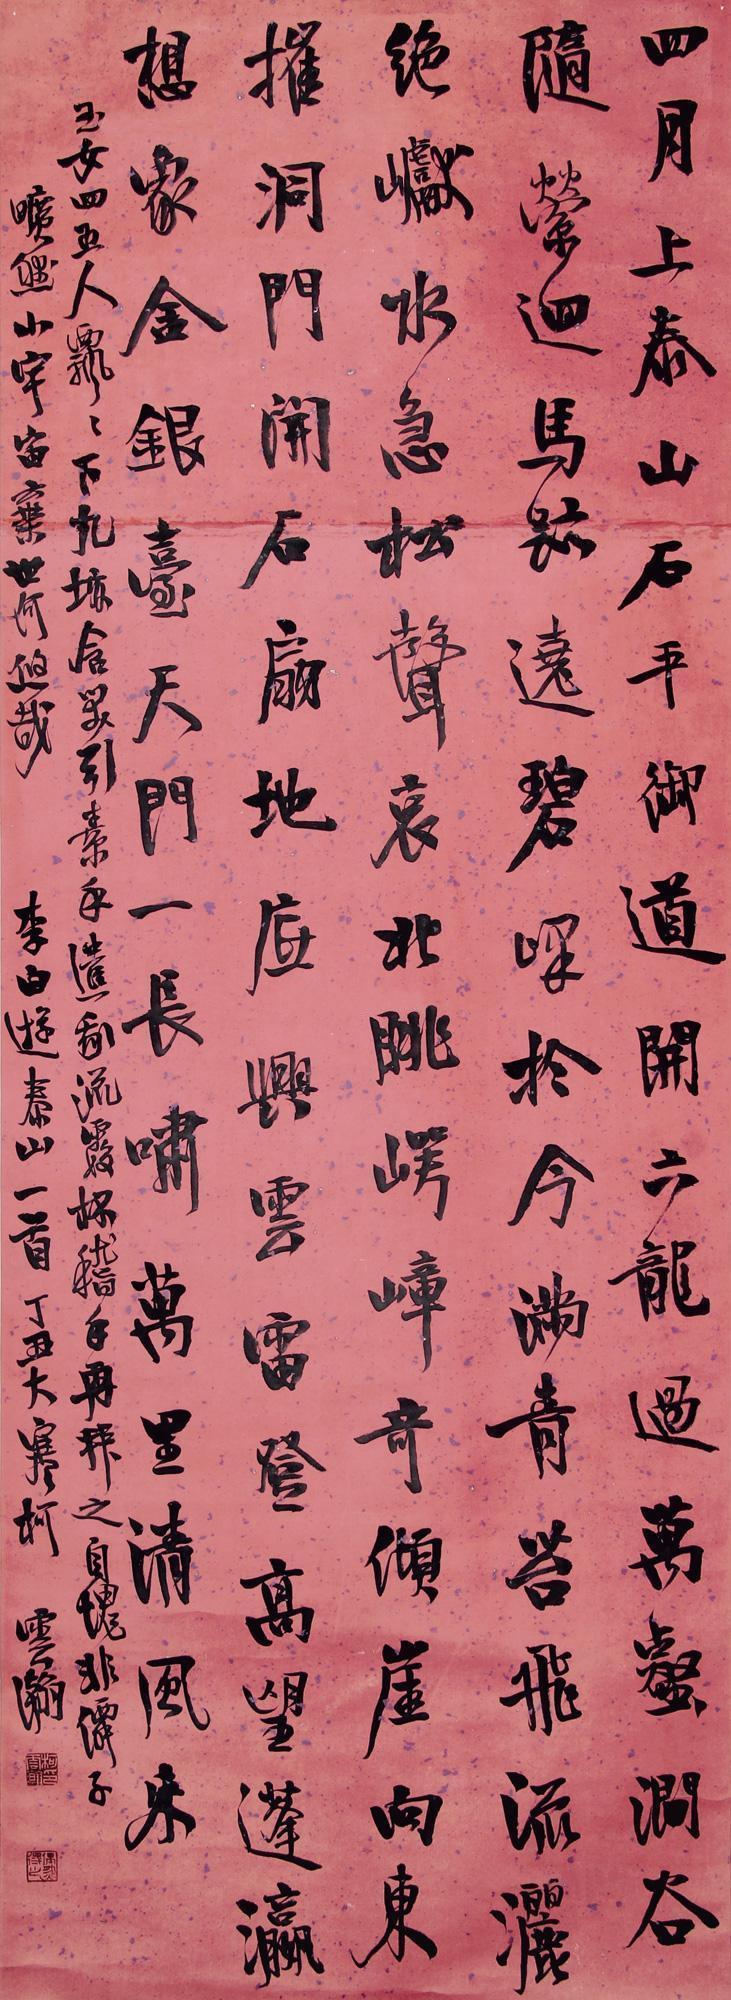 四月上泰山石平御道開六龍過萬壑澗谷
隨縈迴馬跡遶碧峰於今滿青苔飛流灑
絶巘水急松聲哀北眺崿嶂奇傾崖向東
摧洞門閉石扇地底興雲雷登高望蓬瀛
想象金銀臺天門一長嘯萬里清風來
玉女四五人飄〻下九垓含笑引素手遺我流霞杯稽首再拜之自愧非僊才
曠然小宇宙棄世何悠哉 李白遊泰山一首 丁丑大寒 柯雲瀚